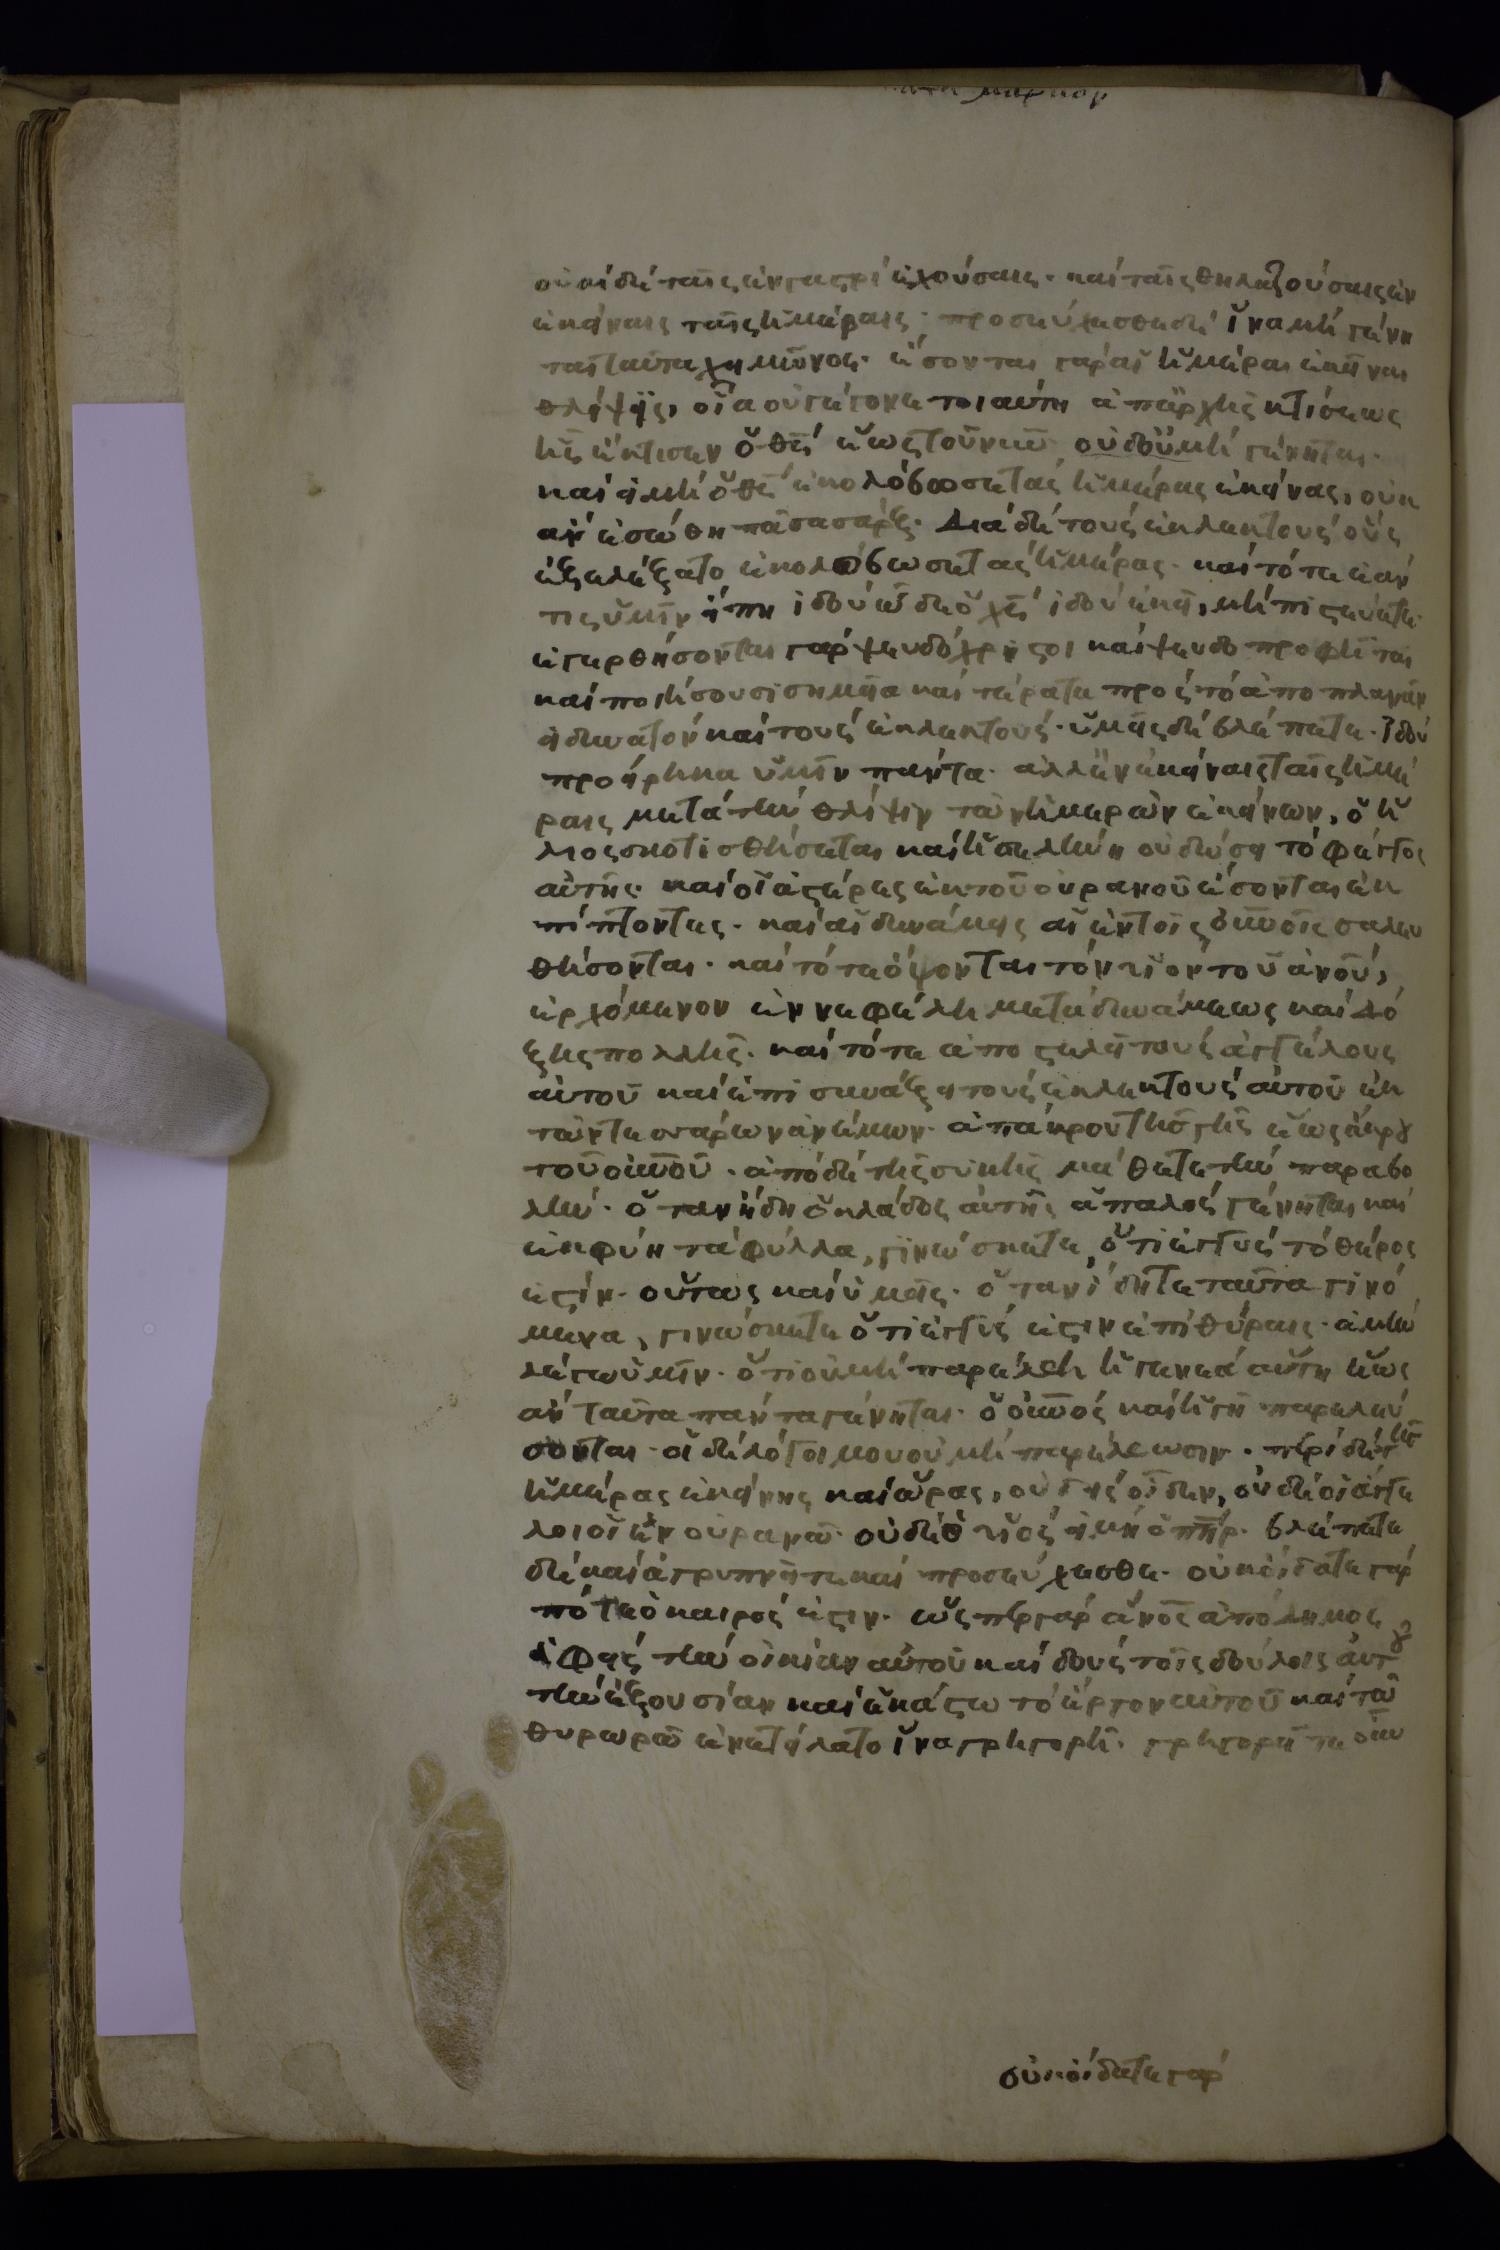 κατὰ μάρκον
οὐαὶ δὲ ταῖς ἐν γαστρὶ ἐχούσαις· καὶ ταῖς θηλαζούσαις ἐν
ἐκείναις ταῖς ἡμέραις· προσεύχεσθε δὲ ἵνα μὴ γένη
ται ταῦτα χειμῶνος· ἔσονται γὰρ αἱ ἡμέραι ἐκεῖναι
θλίψεις, οἵα οὐ γέγονε τοιαύτη ἀπ' ἀρχῆς κτίσεως
ἧς ἔκτισεν ὁ θς̄ ἕως τοῦ νῦν οὐδ' οὐ μὴ γένηται·
καὶ εἰ μὴ ὁ θς̄ ἐκολόβωσε τὰς ἡμέρας ἐκείνας, οὐκ
ἂν ἐσώθη πᾶσα σάρξ· Διὰ δὲ τοὺς ἐκλεκτοὺς οὓς
ἐξελέξατο ἐκολόβωσε τὰς ἡμέρας· καὶ τότε ἐάν
τις ὑμῖν εἴπη ἰδοὺ ὧδε ὁ χς̄ ἰδοὺ ἐκεῖ, μὴ πιστεύετε·
ἐγερθήσονται γὰρ ψευδόχριστοι καὶ ψευδοπροφῆται
καὶ ποιήσουσι σημεῖα καὶ τέρατα πρὸς τὸ ἀποπλανᾶν
εἰ δυνατὸν καὶ τοὺς ἐκλεκτούς· ὑμεῖς δὲ βλέπετε· ἰδοὺ
προείρηκα ὑμῖν πάντα· ἀλλ' ἐν ἐκείναις ταῖς ἡμέ
ραις μετὰ τὴν θλίψιν τῶν ἡμερῶν ἐκείνων, ὁ ἥ
λιος σκοτισθήσεται καὶ ἡ σελήνη οὐ δώσει τὸ φέγγος
αὐτῆς· καὶ οἱ ἀστέρες ἐκ τοῦ οὐρανοῦ ἔσονται ἐκ
πίπτοντες· καὶ αἱ δυνάμεις αἱ ἐν τοῖς οὐνοῖς σαλευ
θήσονται· καὶ τότε ὄψονται τὸν υἱὸν τοῦ ἀνοῦ,
ἐρχόμενον ἐν νεφέλη μετὰ δυνάμεως καὶ δό
ξης πολλῆς· καὶ τότε ἀποστελεῖ τοὺς ἀγγέλους
αὐτοῦ καὶ ἐπισυνάξει τοὺς ἐκλεκτοὺς αὐτοῦ ἐκ
τῶν τεσσάρων ἀνέμων· ἀπ' ἄκρου τῆς γῆς ἕως ἄκρου
τοῦ οὐνοῦ· ἀπὸ δὲ τῆς συκῆς μάθετε τὴν παραβο
λήν· ὅταν ἤδη ὁ κλάδος αὐτῆς ἁπαλὸς γένηται καὶ
ἐκφύη τὰ φύλλα, γινώσκετε ὅτι ἐγγὺς τὸ θέρος
ἐστίν· οὕτως καὶ ὑμεῖς· ὅταν ἴδητε ταῦτα γινό
μενα, γινώσκετε ὅτι ἐγγύς ἐστιν ἐπὶ θύραις· ἀμὴν
λέγω ὑμῖν· ὅτι οὐ μὴ παρέλθη ἡ γενεὰ αὕτη ἕως
ἂν ταῦτα πάντα γένηται· ὁ οὐνὸς καὶ ἡ γῆ παρελεύ
σονται· οἱ δὲ λόγοι μου οὐ μὴ παρέλθωσιν· περὶ δὲ τῆς
ἡμέρας ἐκείνης καὶ ὥρας, οὐδεὶς οἶδεν, οὐδὲ οἱ ἄγγε
λοι οἱ ἐν οὐρανῶ· οὐδὲ ὁ υἱὸς εἰ μὴ ὁ πηρ· βλέπετε
δὲ καὶ ἀγρυπνεῖτε καὶ προσεύχεσθε· οὐκ οἴδατε γὰρ
πότε ὁ καιρός ἐστιν· ὥσπερ γὰρ ἄνος ἀπόδημος
ἀφεὶς τὴν οἰκίαν αὐτοῦ καὶ δοὺς τοῖς δούλοις αὐτοῦ
τὴν ἐξουσίαν καὶ ἑκάστω τὸ ἔργον αὐτοῦ καὶ τῶ
θυρωρῶ ἐνετείλατο ἵνα γρηγορῆ· γρηγορεῖτε οὖν
οὐκ οἴδατε γάρ